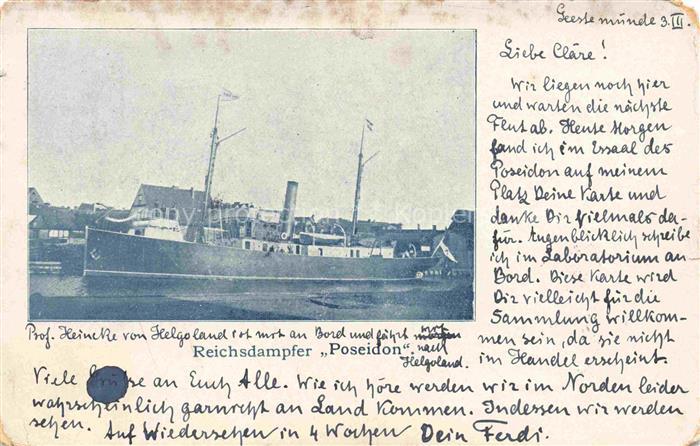 Geestemünde 3.III.
Liebe Cläre!
Wir liegen noch hier
und warten die nächste
Flut ab. Heute Morgen
fand ich im Essaal des
Poseidon auf meinem
Platz Deine Karte und
danke Dir vielmals da-
für. Augenblicklich schreibe
ich im Laboratorium an
Bord. Diese Karte wird
Dir vielleicht für die
Sammlung willkom-
men sein, da sie nicht
im Handel erscheint.
Prof. Heincke von Helgoland ist mit an Bord und fährt mit
nach
Helgoland.
Reichsdampfer „Poseidon".
Viele an Euch Alle. Wie ich höre werden wir im Norden leider
wahrscheinlich garnicht an Land kommen. Indessen wir werden
sehen. Auf Wiedersehen in 4 Wochen Dein Ferdi.